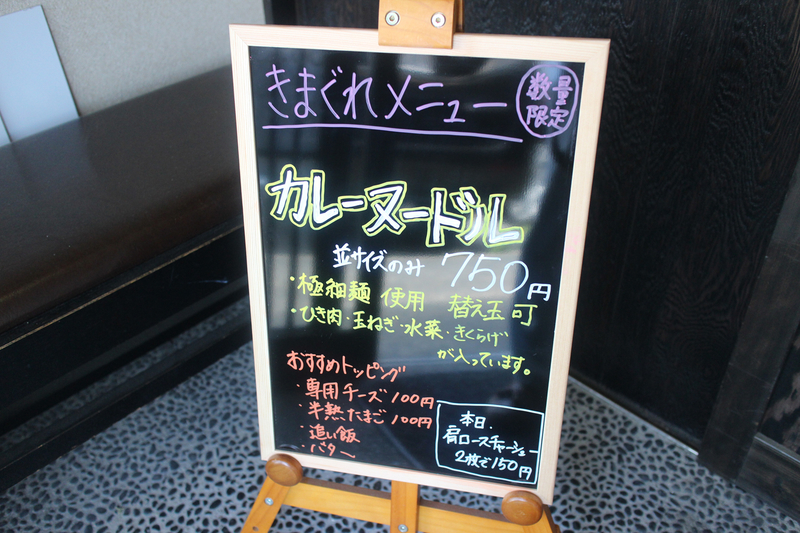 きまぐれメニュー
数量
限定
カレーヌードル
並サイズのみ 750円
・極細麺 使用 替え玉 可
・ひき肉・玉ねぎ・水菜・きくらげ
が入っています。
おすすめトッピング
・専用チーズ 100円
・半熟たまご 100円
・追い飯
・バター
本日.
肩ロースチャーシュー
2枚で150円